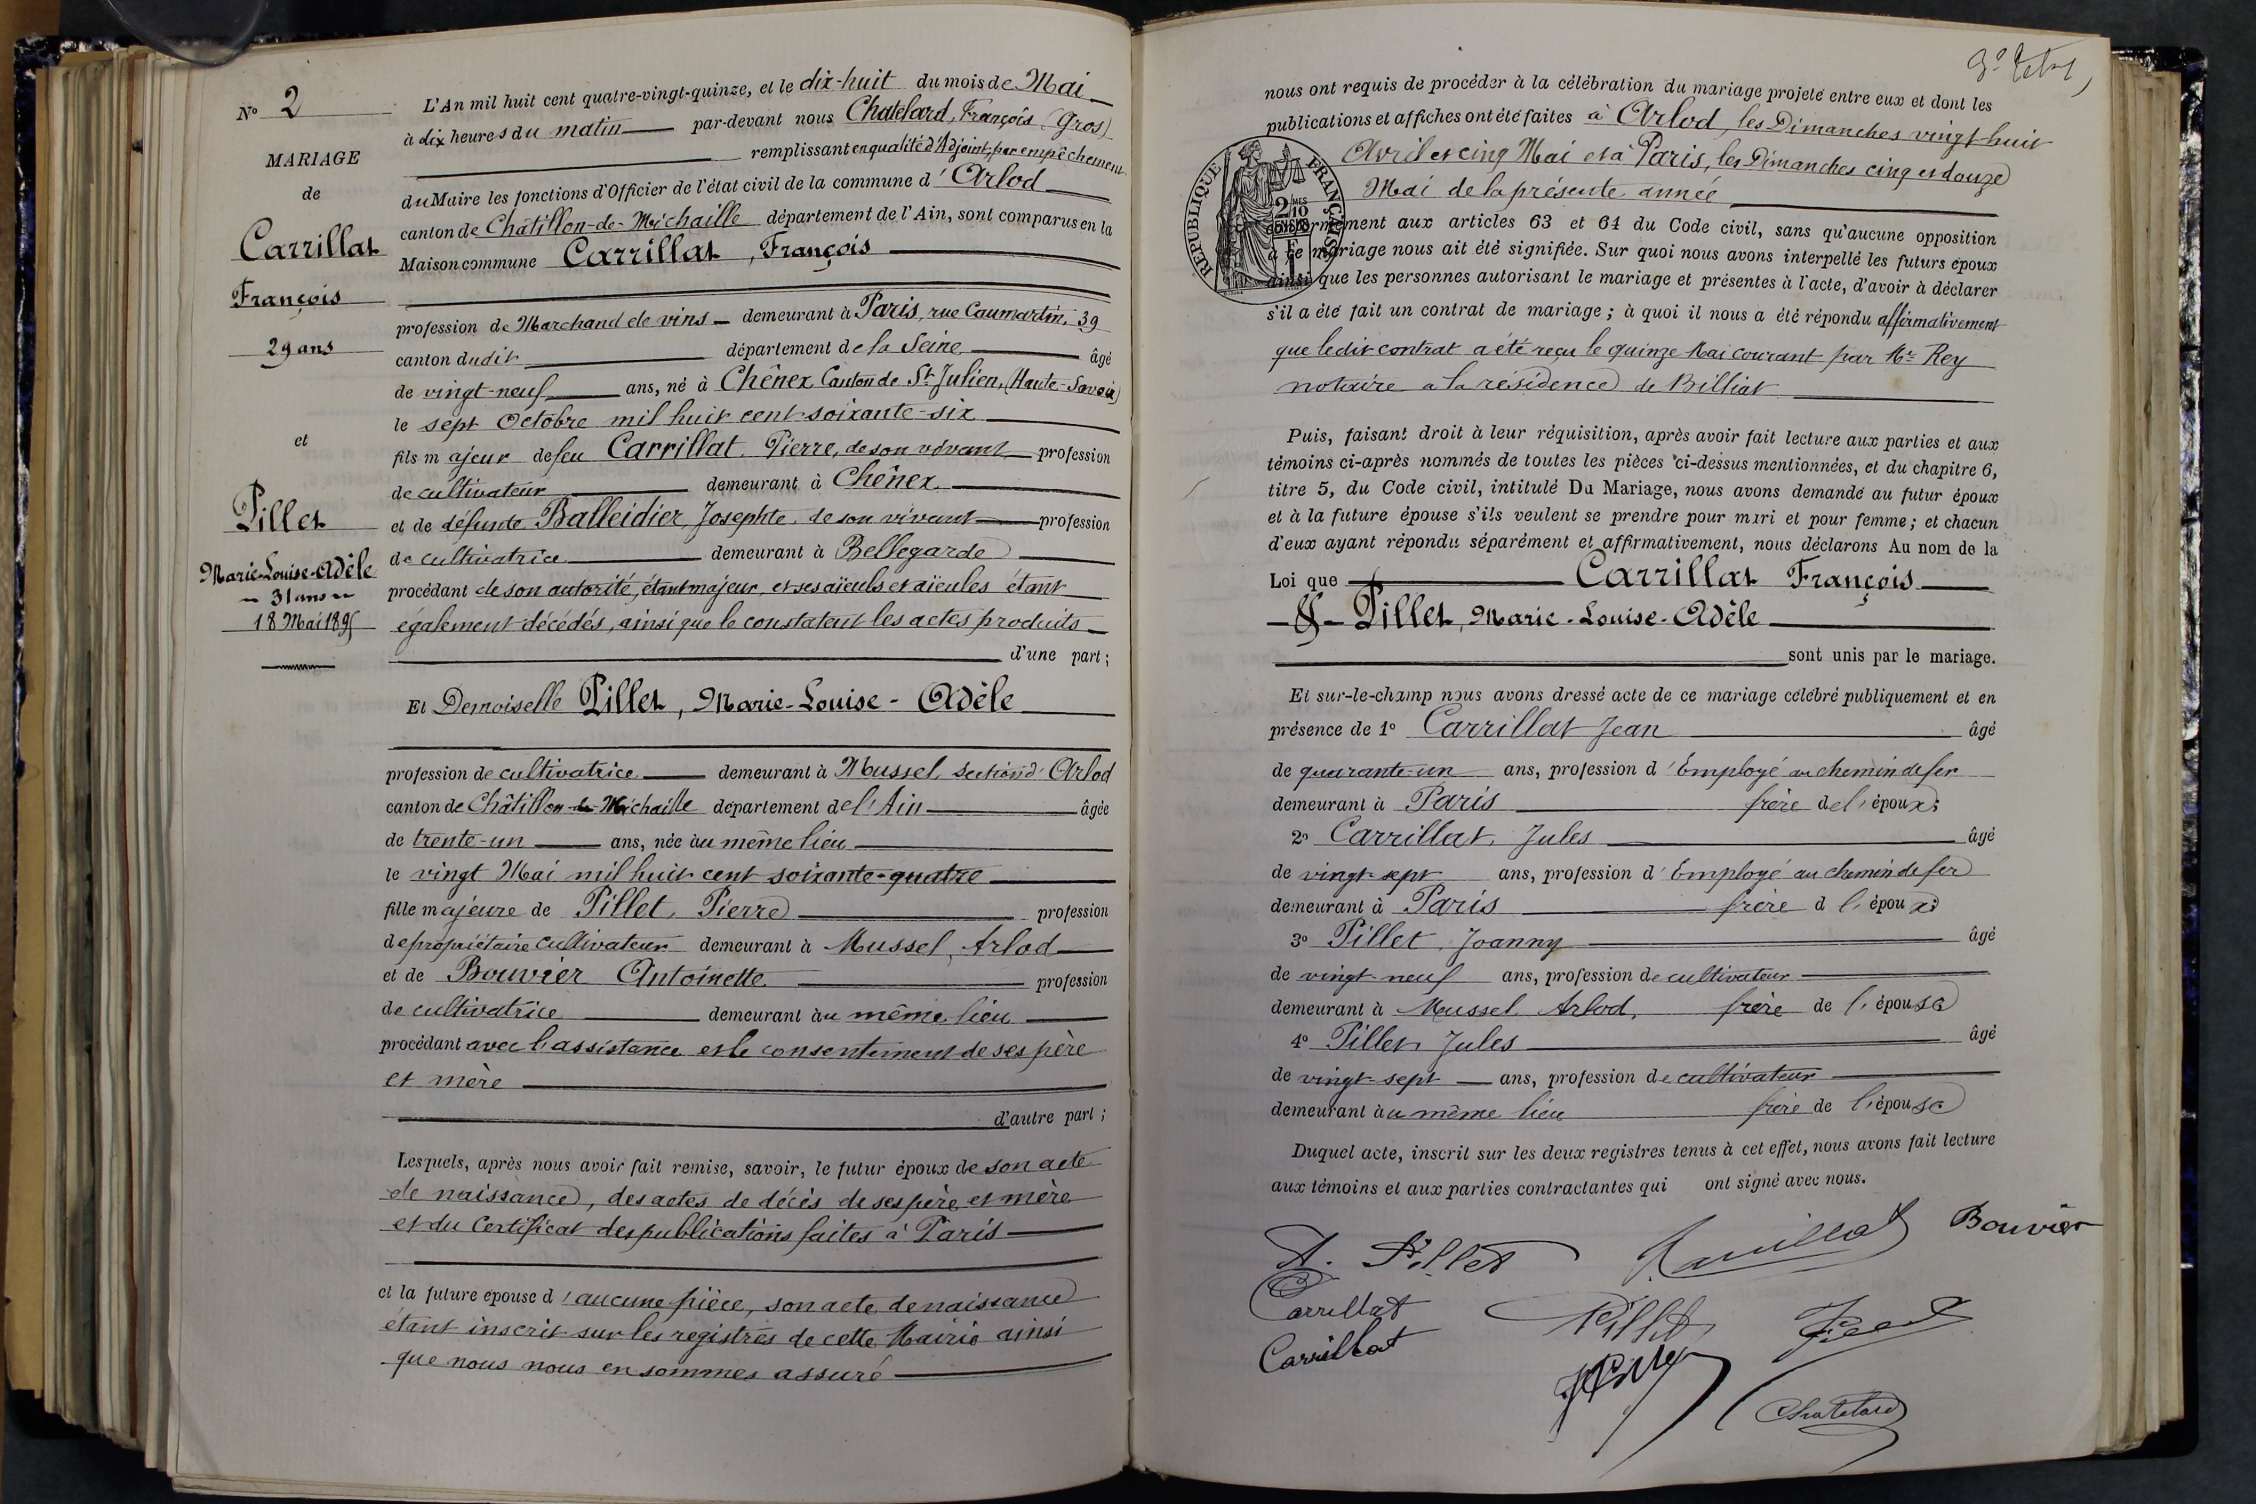 Nº 2
MARIAGE
de
Carrillat
François
29 ans
et
Pillet
Marie-Louise-Adèle
31 ans
18 Mai 1895
L'An mil huit cent quatre-vingt-quinze, et le dix-huit du mois de Mai
à dix heures du matin par-devant nous Chatelard, François (Gros)
remplissant en qualité d'Adjoint, par empêchement
du Maire les fonctions d'Officier de l'état civil de la commune d'Arlod
canton de Châtillon-de-Michaille département de l'Ain, sont comparus en la
Maison commune Carrillat, François
profession de Marchand de vins demeurant à Paris, rue Caumartin, 39
canton dudit département de la Seine âgé
de vingt-neuf ans, né à Chênex Canton de St Julien, (Haute-Savoie)
le sept Octobre mil huit cent soixante-six
fils majeur de feu Carrillat Pierre, de son vivant profession
de cultivateur demeurant à Chênex
et de défunte Balleidier, Josephte, de son vivant profession
de cultivatrice demeurant à Bellegarde
procédant de son autorité, étant majeur, et ses aïeuls et aïeules étant
également décédés, ainsi que le constatent les actes produits
d'une part ;
Et Demoiselle Pillet, Marie-Louise-Adèle
profession de cultivatrice demeurant à Mussel, section d'Arlod
canton de Châtillon-de-Michaille département de l'Ain âgée
de trente-un ans, née au même lieu
le vingt Mai mil huit cent soixante-quatre
fille majeure de Pillet, Pierre profession
de propriétaire cultivateur demeurant à Mussel, Arlod
et de Bouvier Antoinette profession
de cultivatrice demeurant au même lieu
procédant avec l'assistance et le consentement de ses père
et mère
d'autre part ;
Lesquels, après nous avoir fait remise, savoir, le futur époux de son acte
de naissance, des actes de décès de ses père et mère
et du Certificat des publications faites à Paris
et la future épouse d'aucune pièce, son acte de naissance
étant inscrit sur les registres de cette Mairie ainsi
que nous nous en sommes assuré
nous ont requis de procéder à la célébration du mariage projeté entre eux et dont les
publications et affiches ont été faites à Arlod, les Dimanches vingt-huit
Avril et cinq Mai et à Paris, les Dimanches cinq et douze
Mai de la présente année
RÉPUBLIQUE FRANÇAISE
2/10
conformément aux articles 63 et 64 du Code civil, sans qu'aucune opposition
à ce mariage nous ait été signifiée. Sur quoi nous avons interpellé les futurs époux
ainsi que les personnes autorisant le mariage et présentes à l'acte, d'avoir à déclarer
s'il a été fait un contrat de mariage ; à quoi il nous a été répondu affirmativement
que ledit contrat a été reçu le quinze Mai courant par Me Rey
notaire a la résidence de Billiat
Puis, faisant droit à leur réquisition, après avoir fait lecture aux parties et aux
témoins ci-après nommés de toutes les pièces ci-dessus mentionnées, et du chapitre 6,
titre 5, du Code civil, intitulé Du Mariage, nous avons demandé au futur époux
et à la future épouse s'ils veulent se prendre pour mari et pour femme ; et chacun
d'eux ayant répondu séparément et affirmativement, nous déclarons Au nom de la
Loi que Carrillat François
& Pillet, Marie-Louise-Adèle
sont unis par le mariage.
Et sur-le-champ nous avons dressé acte de ce mariage célébré publiquement et en
présence de 1º Carrillat Jean âgé
de quarante-un ans, profession d'Employé au chemin de fer
demeurant à Paris frère de l'époux ;
2º Carrillat, Jules âgé
de vingt-sept ans, profession d'Employé au chemin de fer
demeurant à Paris frère d l'époux ;
3º Pillet, Joanny âgé
de vingt-neuf ans, profession de cultivateur
demeurant à Mussel Arlod, frère de l'épouse
4º Pillet, Jules âgé
de vingt-sept ans, profession de cultivateur
demeurant au même lieu frère de l'épouse
Duquel acte, inscrit sur les deux registres tenus à cet effet, nous avons fait lecture
aux témoins et aux parties contractantes qui ont signé avec nous.
A. Pillet Carrillat Bouvier
Carrillat Pillet
Carrillat
Chatelard